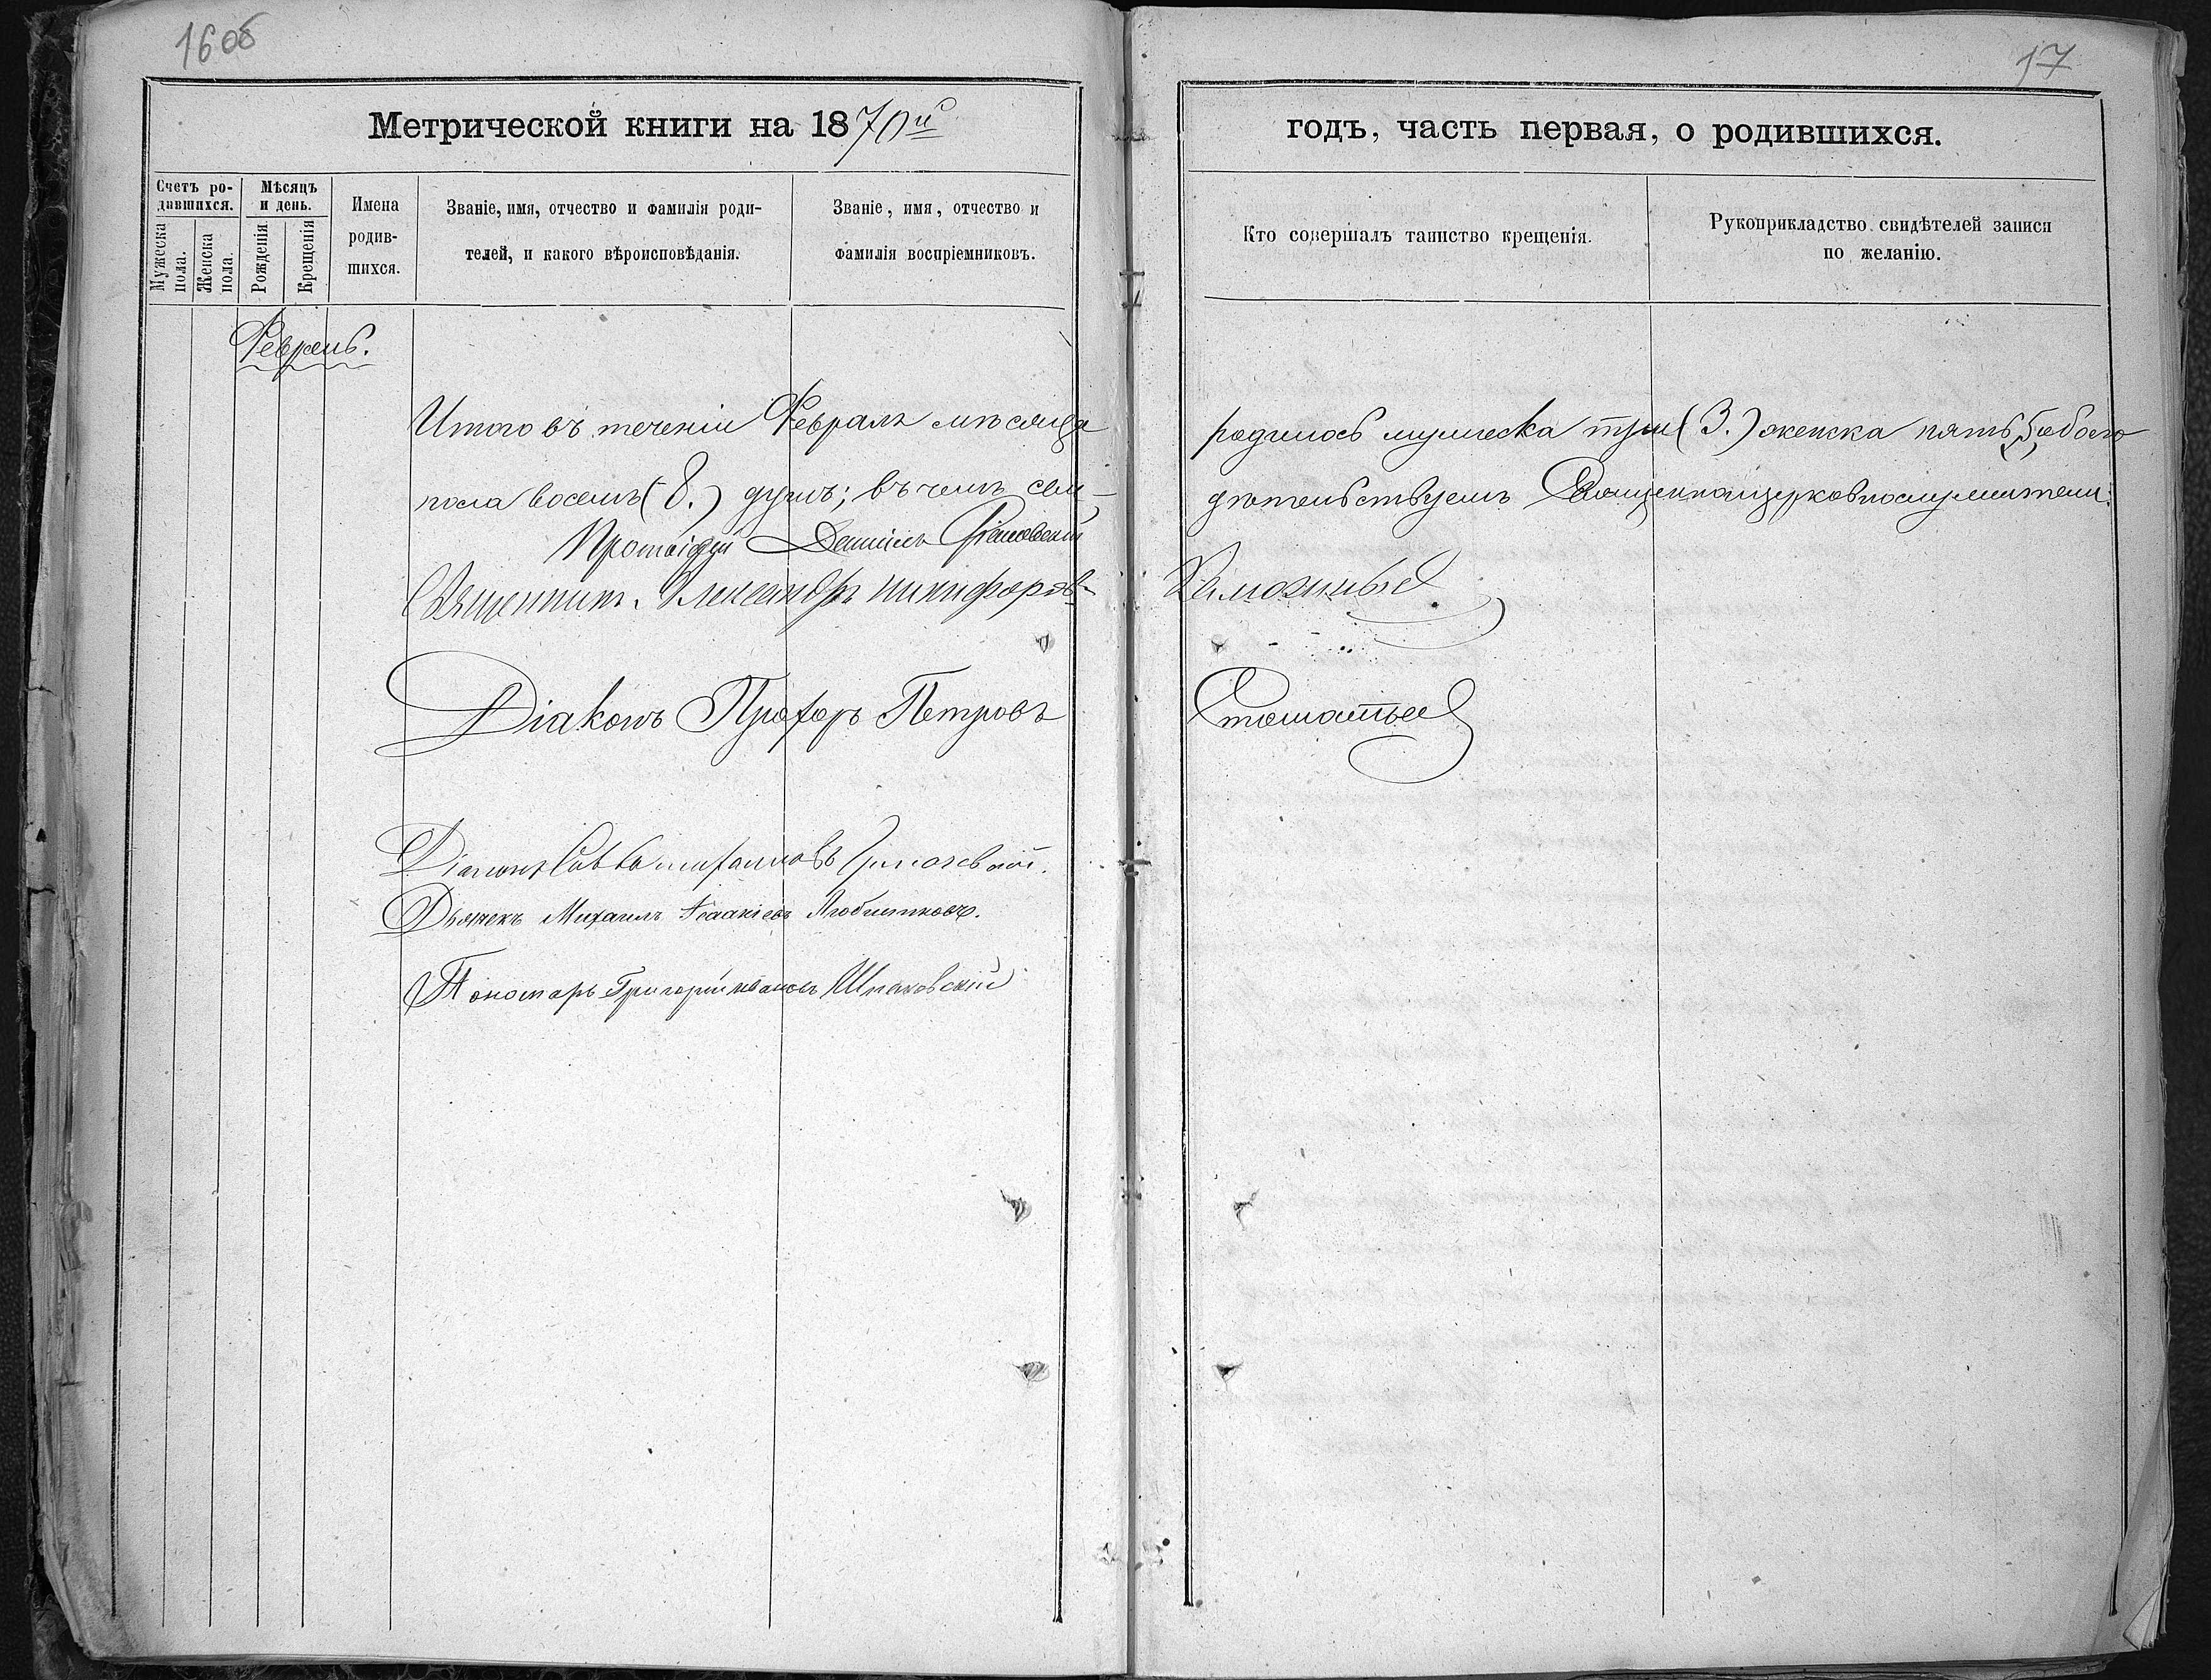 16 об
17
Метрической книги на 1870й
годъ, часть первая, о родившихся.
Счетъ родившихся.
Мѣсяцъ и день.
Мужеска пола.
Женска пола.
Рожденія
Крещенія
Имена родив-
шихся.
Званіе, имя, отчество и фамилія роди-
телей, и какого вѣроисповѣданія.
Званіе, имя, отчество и
фамилія воспріемниковъ.
Кто совершалъ таинство крещенія.
Рукоприкладство свидѣтелей записи
по желанію.
Февраль.
Итого въ теченіи Февраля мѣсяца родилось мужеска три (3.) женска пять, 5, обоего
пола восемь (8.) душъ; въ чемъ сви-дѣтельствуемъ Священноцерковнослужители:
Протоіерей Даніилъ
Священникъ Александръ Никифоровъ
Діаконъ Прохоръ Петровъ
Діаконъ Савва
Дьячекъ Михаилъ Исаакіевъ
Пономарь Григорій Ивановъ Шпаковскій